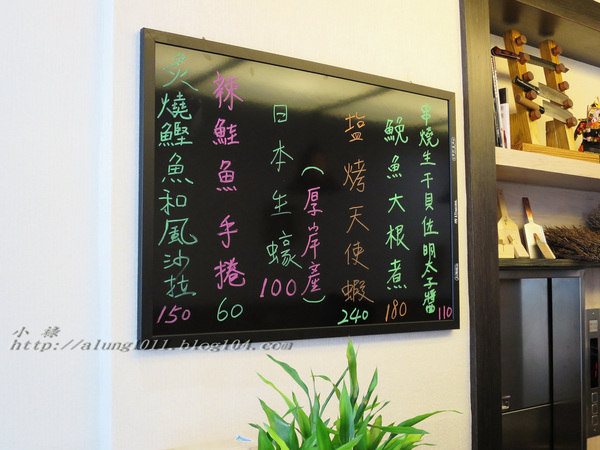 串燒生干貝佐明太子醬 110
鮸魚大根煮 180
塩烤天使蝦 240
日本生蠔(厚岸產) 100
辣鮭魚手捲 60
炙燒鰹魚和風沙拉 150
小祿
http://alung1011.blog104.com